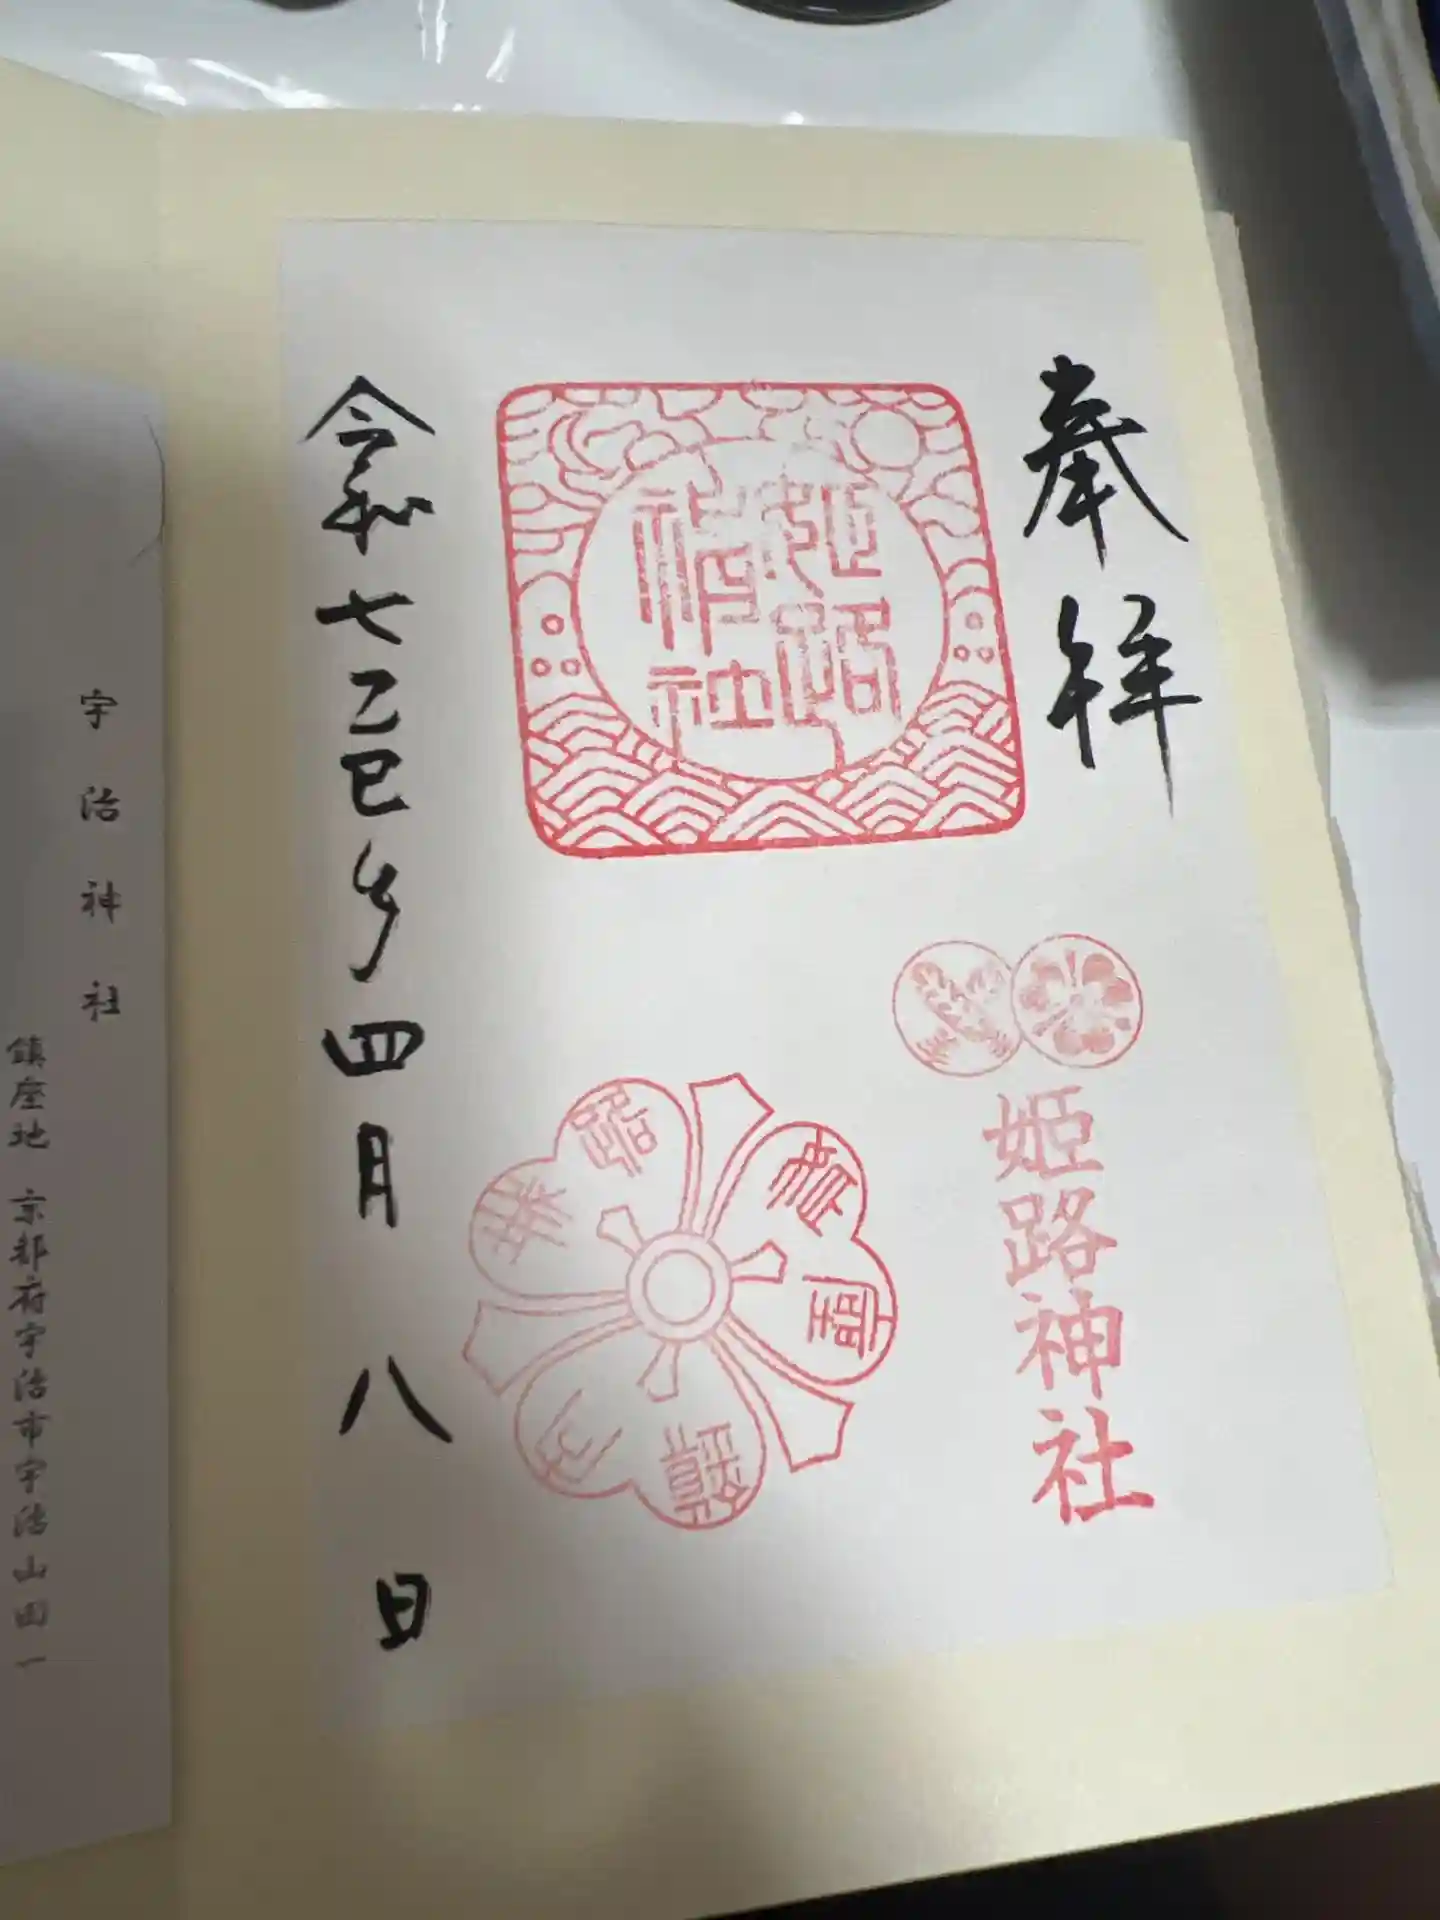 奉拝
姫路
神社
姫路神社
令和七乙巳年四月八日
宇治神社
鎮座地 京都府宇治市宇治山田一